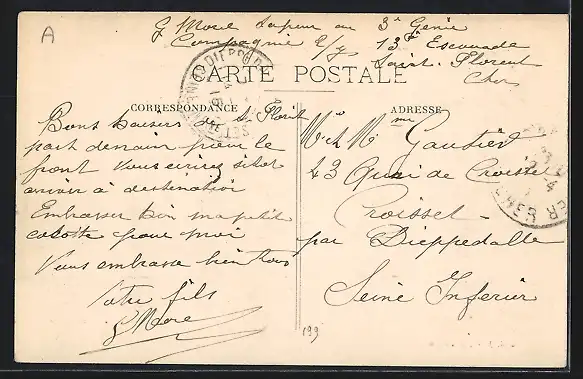 A
G Morel Sapeur au 3e Genie
Compagnie 13e Escouade
Saint-Florent
Cher
CARTE POSTALE
CORRESPONDANCE
ADRESSE
Bons baisers de St Florent
part demain pour le
front Vous ecrirez sitot
arriver à destination
Embrasser bien ma petite
pour moi
Vous embrasse bien tous
Votre fils
G Morel
Mr & Me Gautier
43 Quai de Croisset
Croisset
par Dieppedalle
Seine Inferieur
199